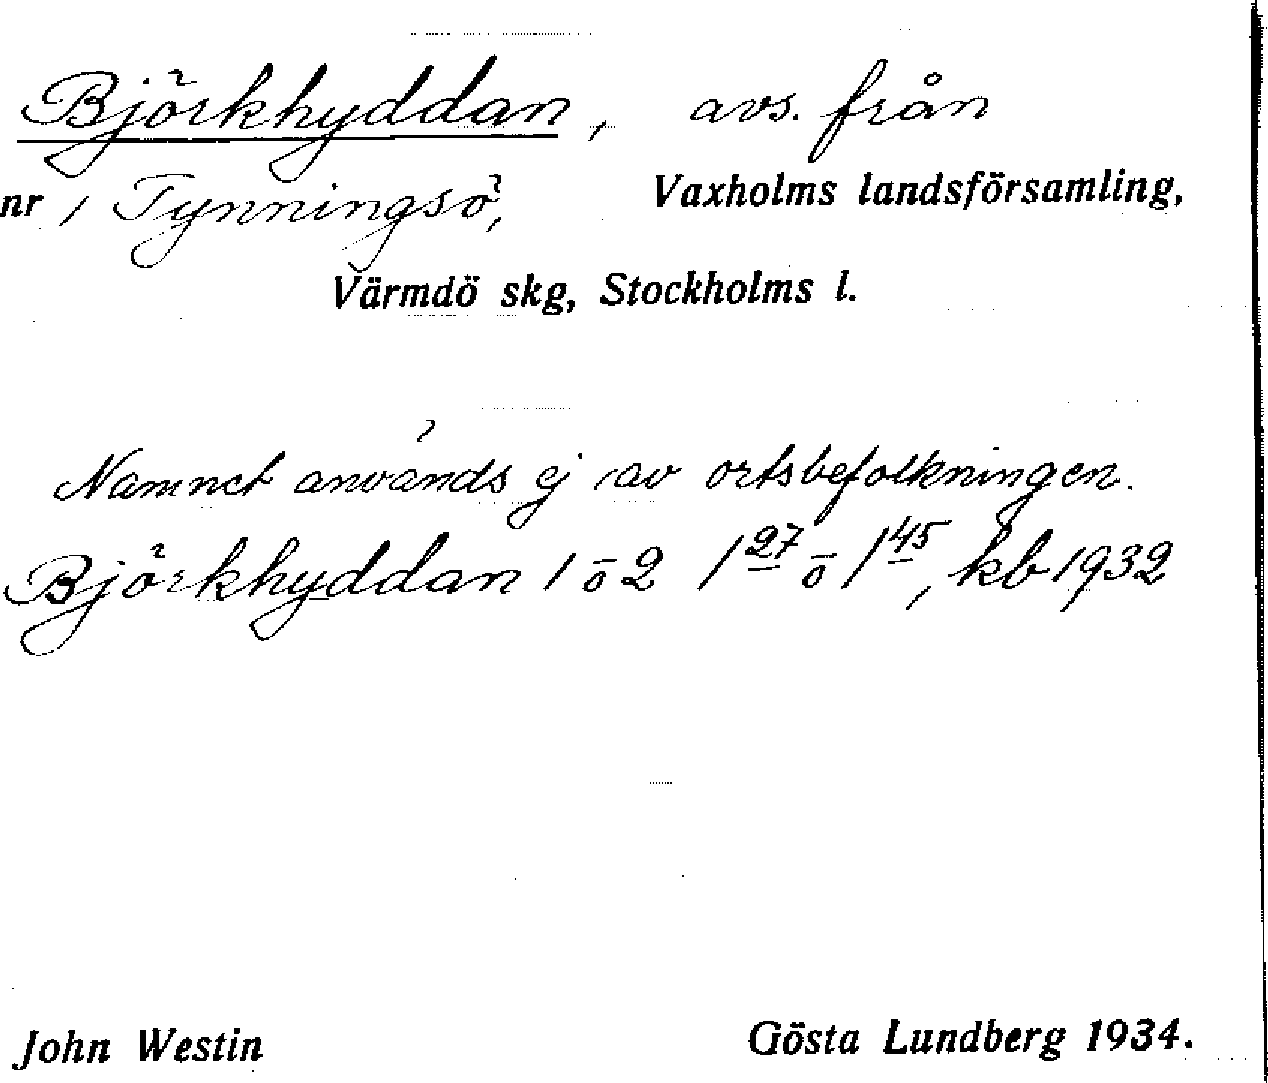 Björkhyddan, avs. från
nr 1 Tynningsö, Vaxholms landsförsamling,
Värmdö skg, Stockholms l.
Namnet används ej av ortsbefolkningen.
Björkhyddan 1 o 2 1²⁷ o 1⁴⁵, kb 1932
John Westin Gösta Lundberg 1934.